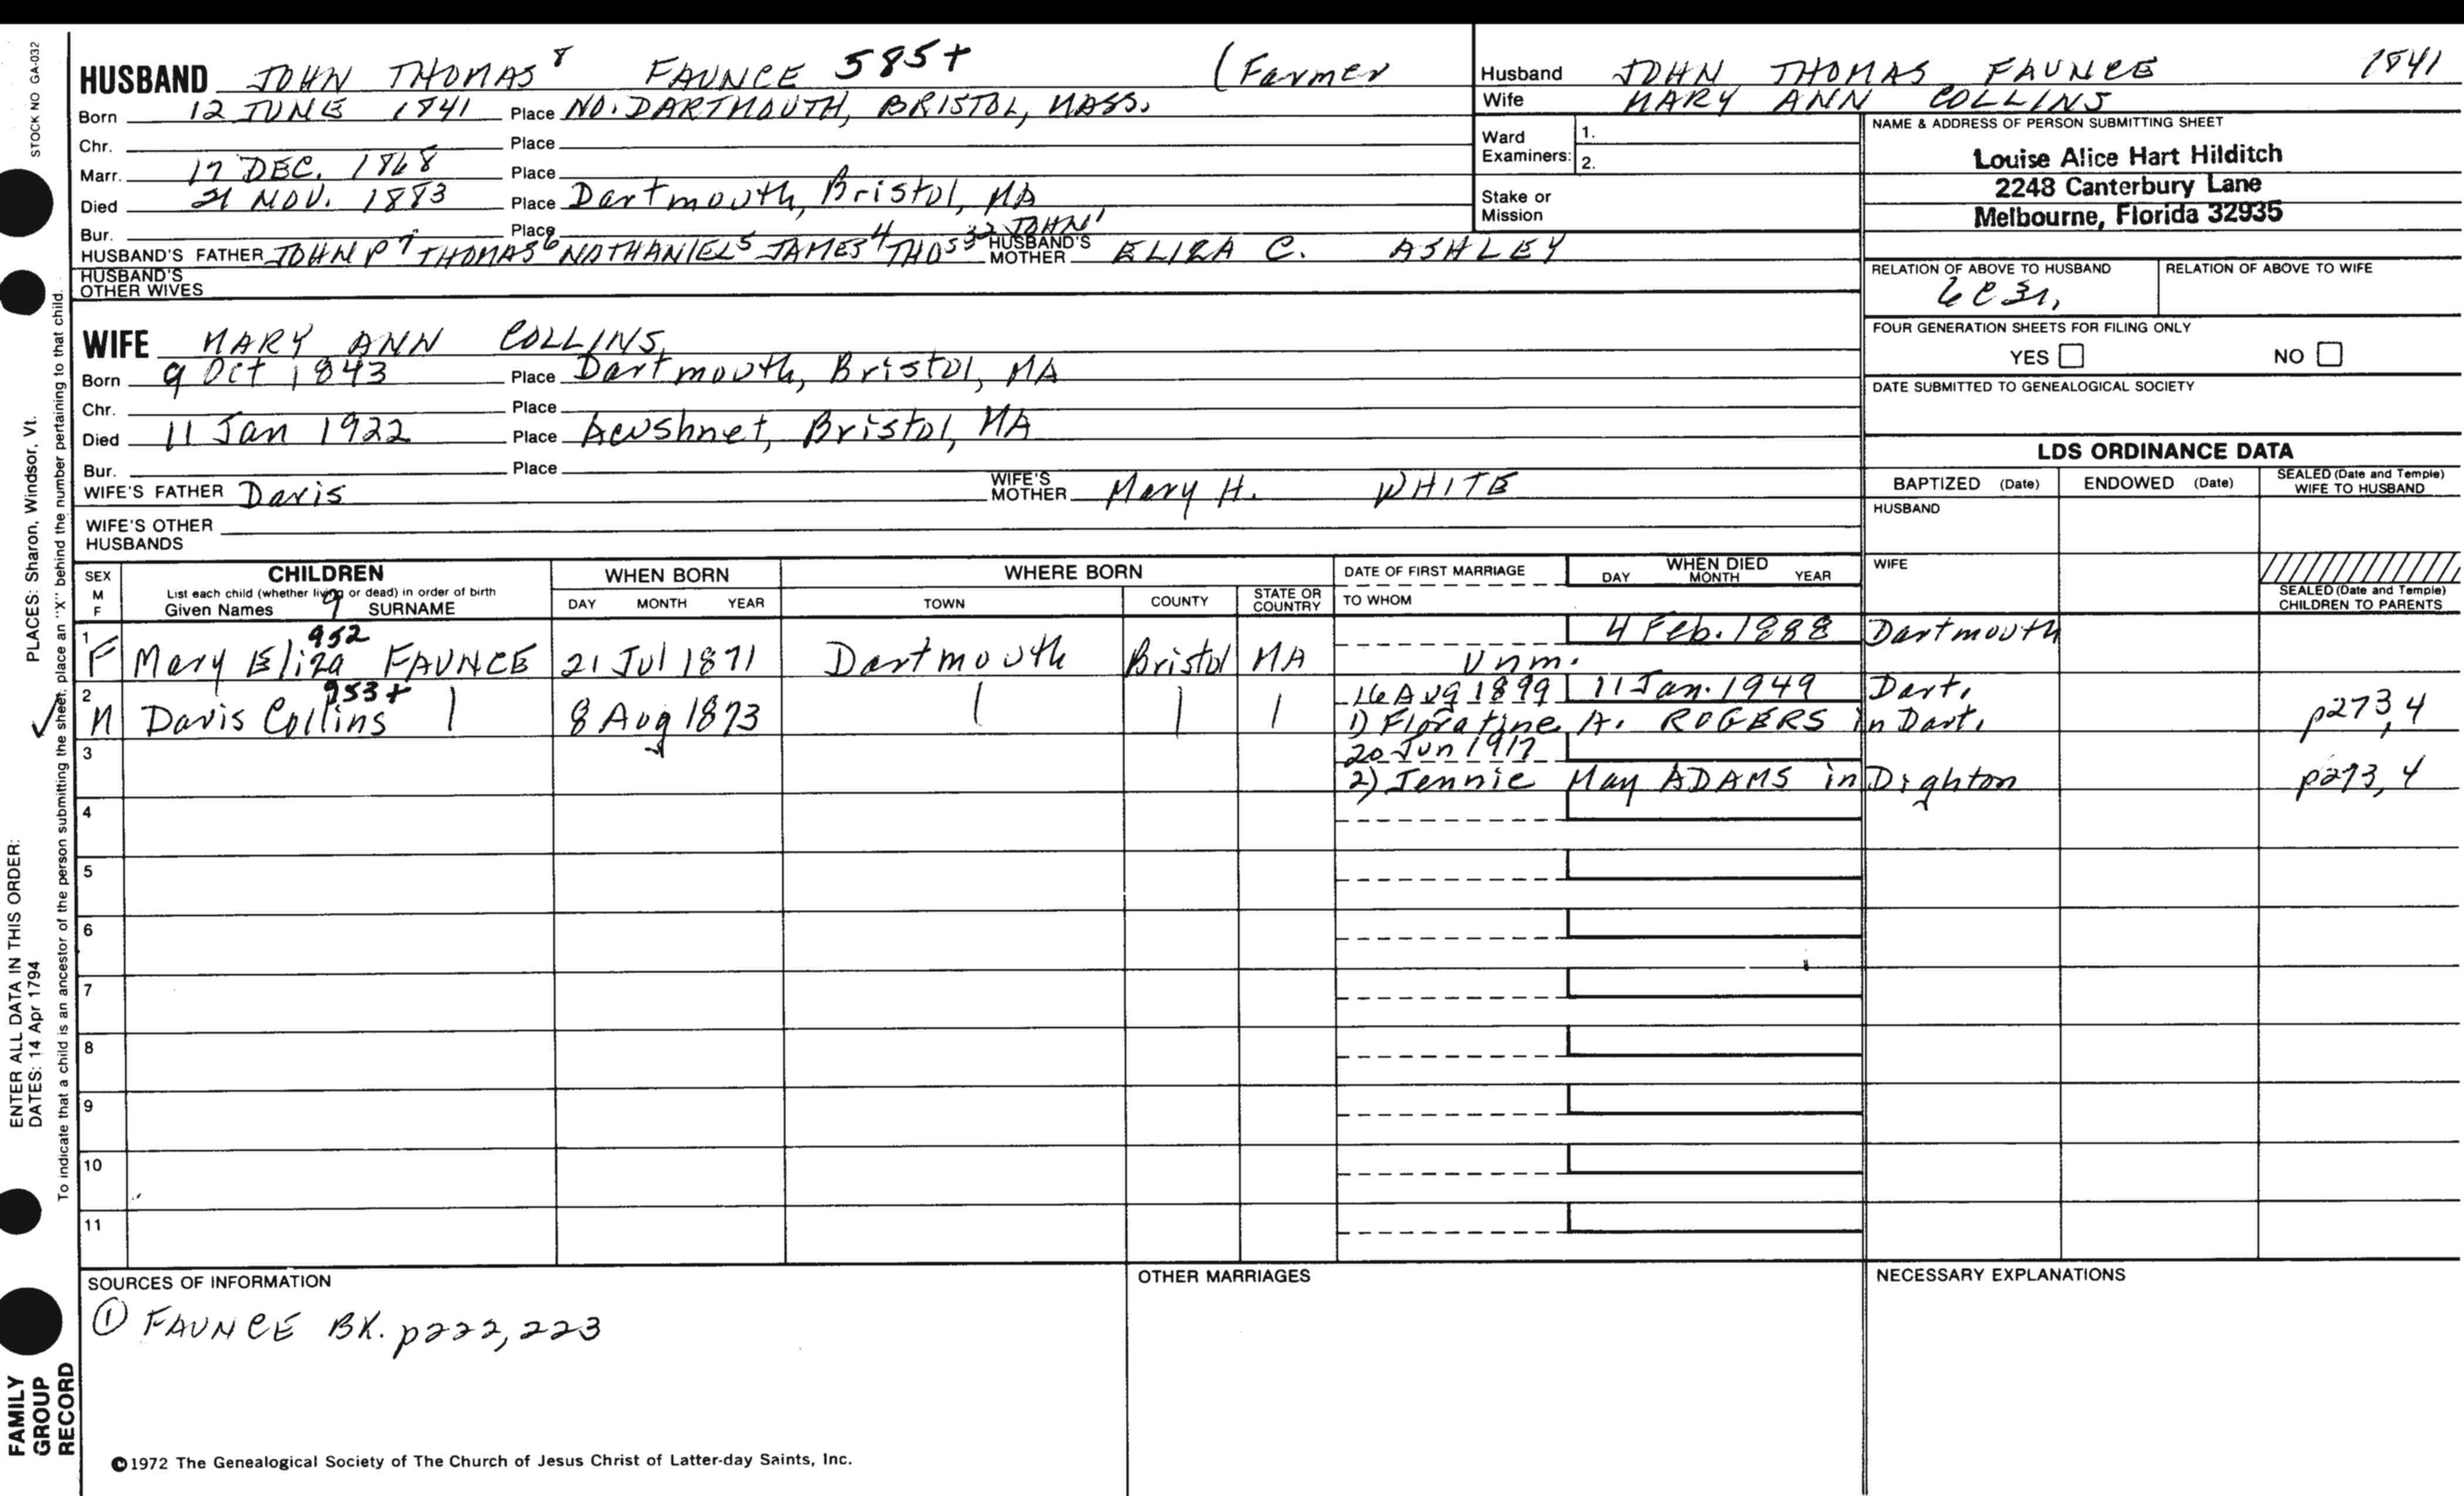 STOCK NO GA-032
HUSBAND JOHN THOMAS 8 FAUNCE 585+ (Farmer
Born 12 JUNE 1841 Place NO. DARTMOUTH, BRISTOL, MASS.
Chr. Place
Marr. 17 DEC. 1868 Place
Died 21 NOV. 1883 Place Dartmouth, Bristol, MA
Bur. Place
HUSBAND'S FATHER JOHN P 7 THOMAS 6 NATHANIEL 5 JAMES 4 THOS 3 2 JOHN 1 HUSBAND'S MOTHER ELIZA C. ASHLEY
HUSBAND'S OTHER WIVES
WIFE MARY ANN COLLINS
Born 9 Oct 1843 Place Dartmouth, Bristol, MA
Chr. Place
Died 11 Jan 1922 Place Acushnet, Bristol, MA
Bur. Place
WIFE'S FATHER Davis WIFE'S MOTHER Mary H. WHITE
WIFE'S OTHER HUSBANDS
Husband JOHN THOMAS FAUNCE 1841
Wife MARY ANN COLLINS
Ward Examiners: 1. 2.
Stake or Mission
NAME & ADDRESS OF PERSON SUBMITTING SHEET
Louise Alice Hart Hilditch
2248 Canterbury Lane
Melbourne, Florida 32935
RELATION OF ABOVE TO HUSBAND RELATION OF ABOVE TO WIFE
6C3r,
FOUR GENERATION SHEETS FOR FILING ONLY
YES NO
DATE SUBMITTED TO GENEALOGICAL SOCIETY
LDS ORDINANCE DATA
BAPTIZED (Date) ENDOWED (Date) SEALED (Date and Temple) WIFE TO HUSBAND
HUSBAND
WIFE
SEALED (Date and Temple) CHILDREN TO PARENTS
SEX M F
CHILDREN
List each child (whether living or dead) in order of birth
Given Names 9 SURNAME
WHEN BORN
DAY MONTH YEAR
WHERE BORN
TOWN COUNTY STATE OR COUNTRY
DATE OF FIRST MARRIAGE
TO WHOM
WHEN DIED
DAY MONTH YEAR
1 952 4 Feb. 1888 Dartmouth
F Mary Eliza FAUNCE 21 Jul 1871 Dartmouth Bristol MA Unm.
2 953+ 16 Aug 1899 11 Jan. 1949 Dart.
M Davis Collins 8 Aug 1873 1) Floratine A. ROGERS in Dart. p273,4
3 20 Jun 1917
2) Jennie May ADAMS in Dighton p273,4
4
5
6
7
8
9
10
11
SOURCES OF INFORMATION
① FAUNCE BK. p222,223
OTHER MARRIAGES
NECESSARY EXPLANATIONS
©1972 The Genealogical Society of The Church of Jesus Christ of Latter-day Saints, Inc.
ENTER ALL DATA IN THIS ORDER:
DATES: 14 Apr 1794 PLACES: Sharon, Windsor, Vt.
To indicate that a child is an ancestor of the person submitting the sheet, place an "X" behind the number pertaining to that child.
FAMILY
GROUP
RECORD